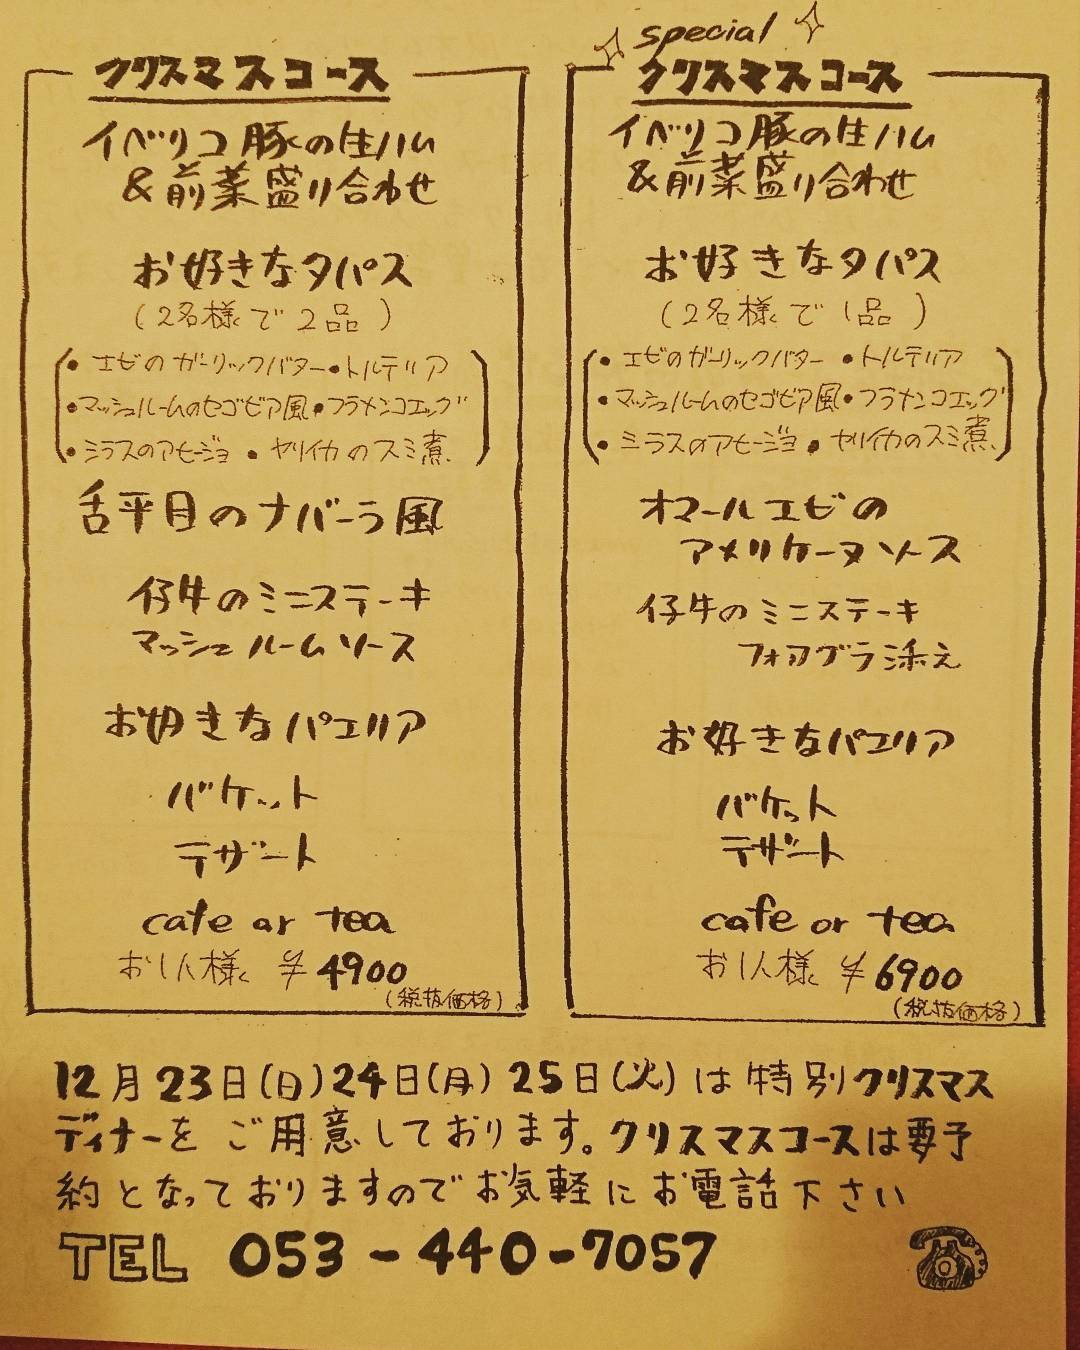 クリスマスコース
イベリコ豚の生ハム
&前菜盛り合わせ
お好きなタパス
(2名様で2品)
・エビのガーリックバター・トルテリア
・マッシュルームのセゴビア風・フラメンコエッグ
・シラスのアヒージョ・ヤリイカのスミ煮
舌平目のナバーラ風
仔牛のミニステーキ
マッシュルームソース
お好きなパエリア
バケット
デザート
cafe or tea
お1人様 ¥4900
(税抜価格)
special
クリスマスコース
イベリコ豚の生ハム
&前菜盛り合わせ
お好きなタパス
(2名様で1品)
・エビのガーリックバター・トルテリア
・マッシュルームのセゴビア風・フラメンコエッグ
・シラスのアヒージョ・ヤリイカのスミ煮
オマールエビの
アメリケーヌソース
仔牛のミニステーキ
フォアグラ添え
お好きなパエリア
バケット
デザート
cafe or tea
お1人様 ¥6900
(税抜価格)
12月23日(日)24日(月)25日(火)は特別クリスマス
ディナーをご用意しております。クリスマスコースは要予
約となっておりますのでお気軽にお電話下さい
TEL 053-440-7057